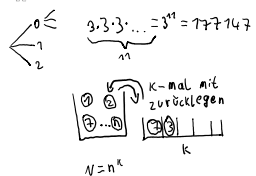 0
1
2
3·3·3·... = 3¹¹ = 177147
11
K-mal mit
zurücklegen
1 2
7 ... n
7 3
K
N = nᵏ